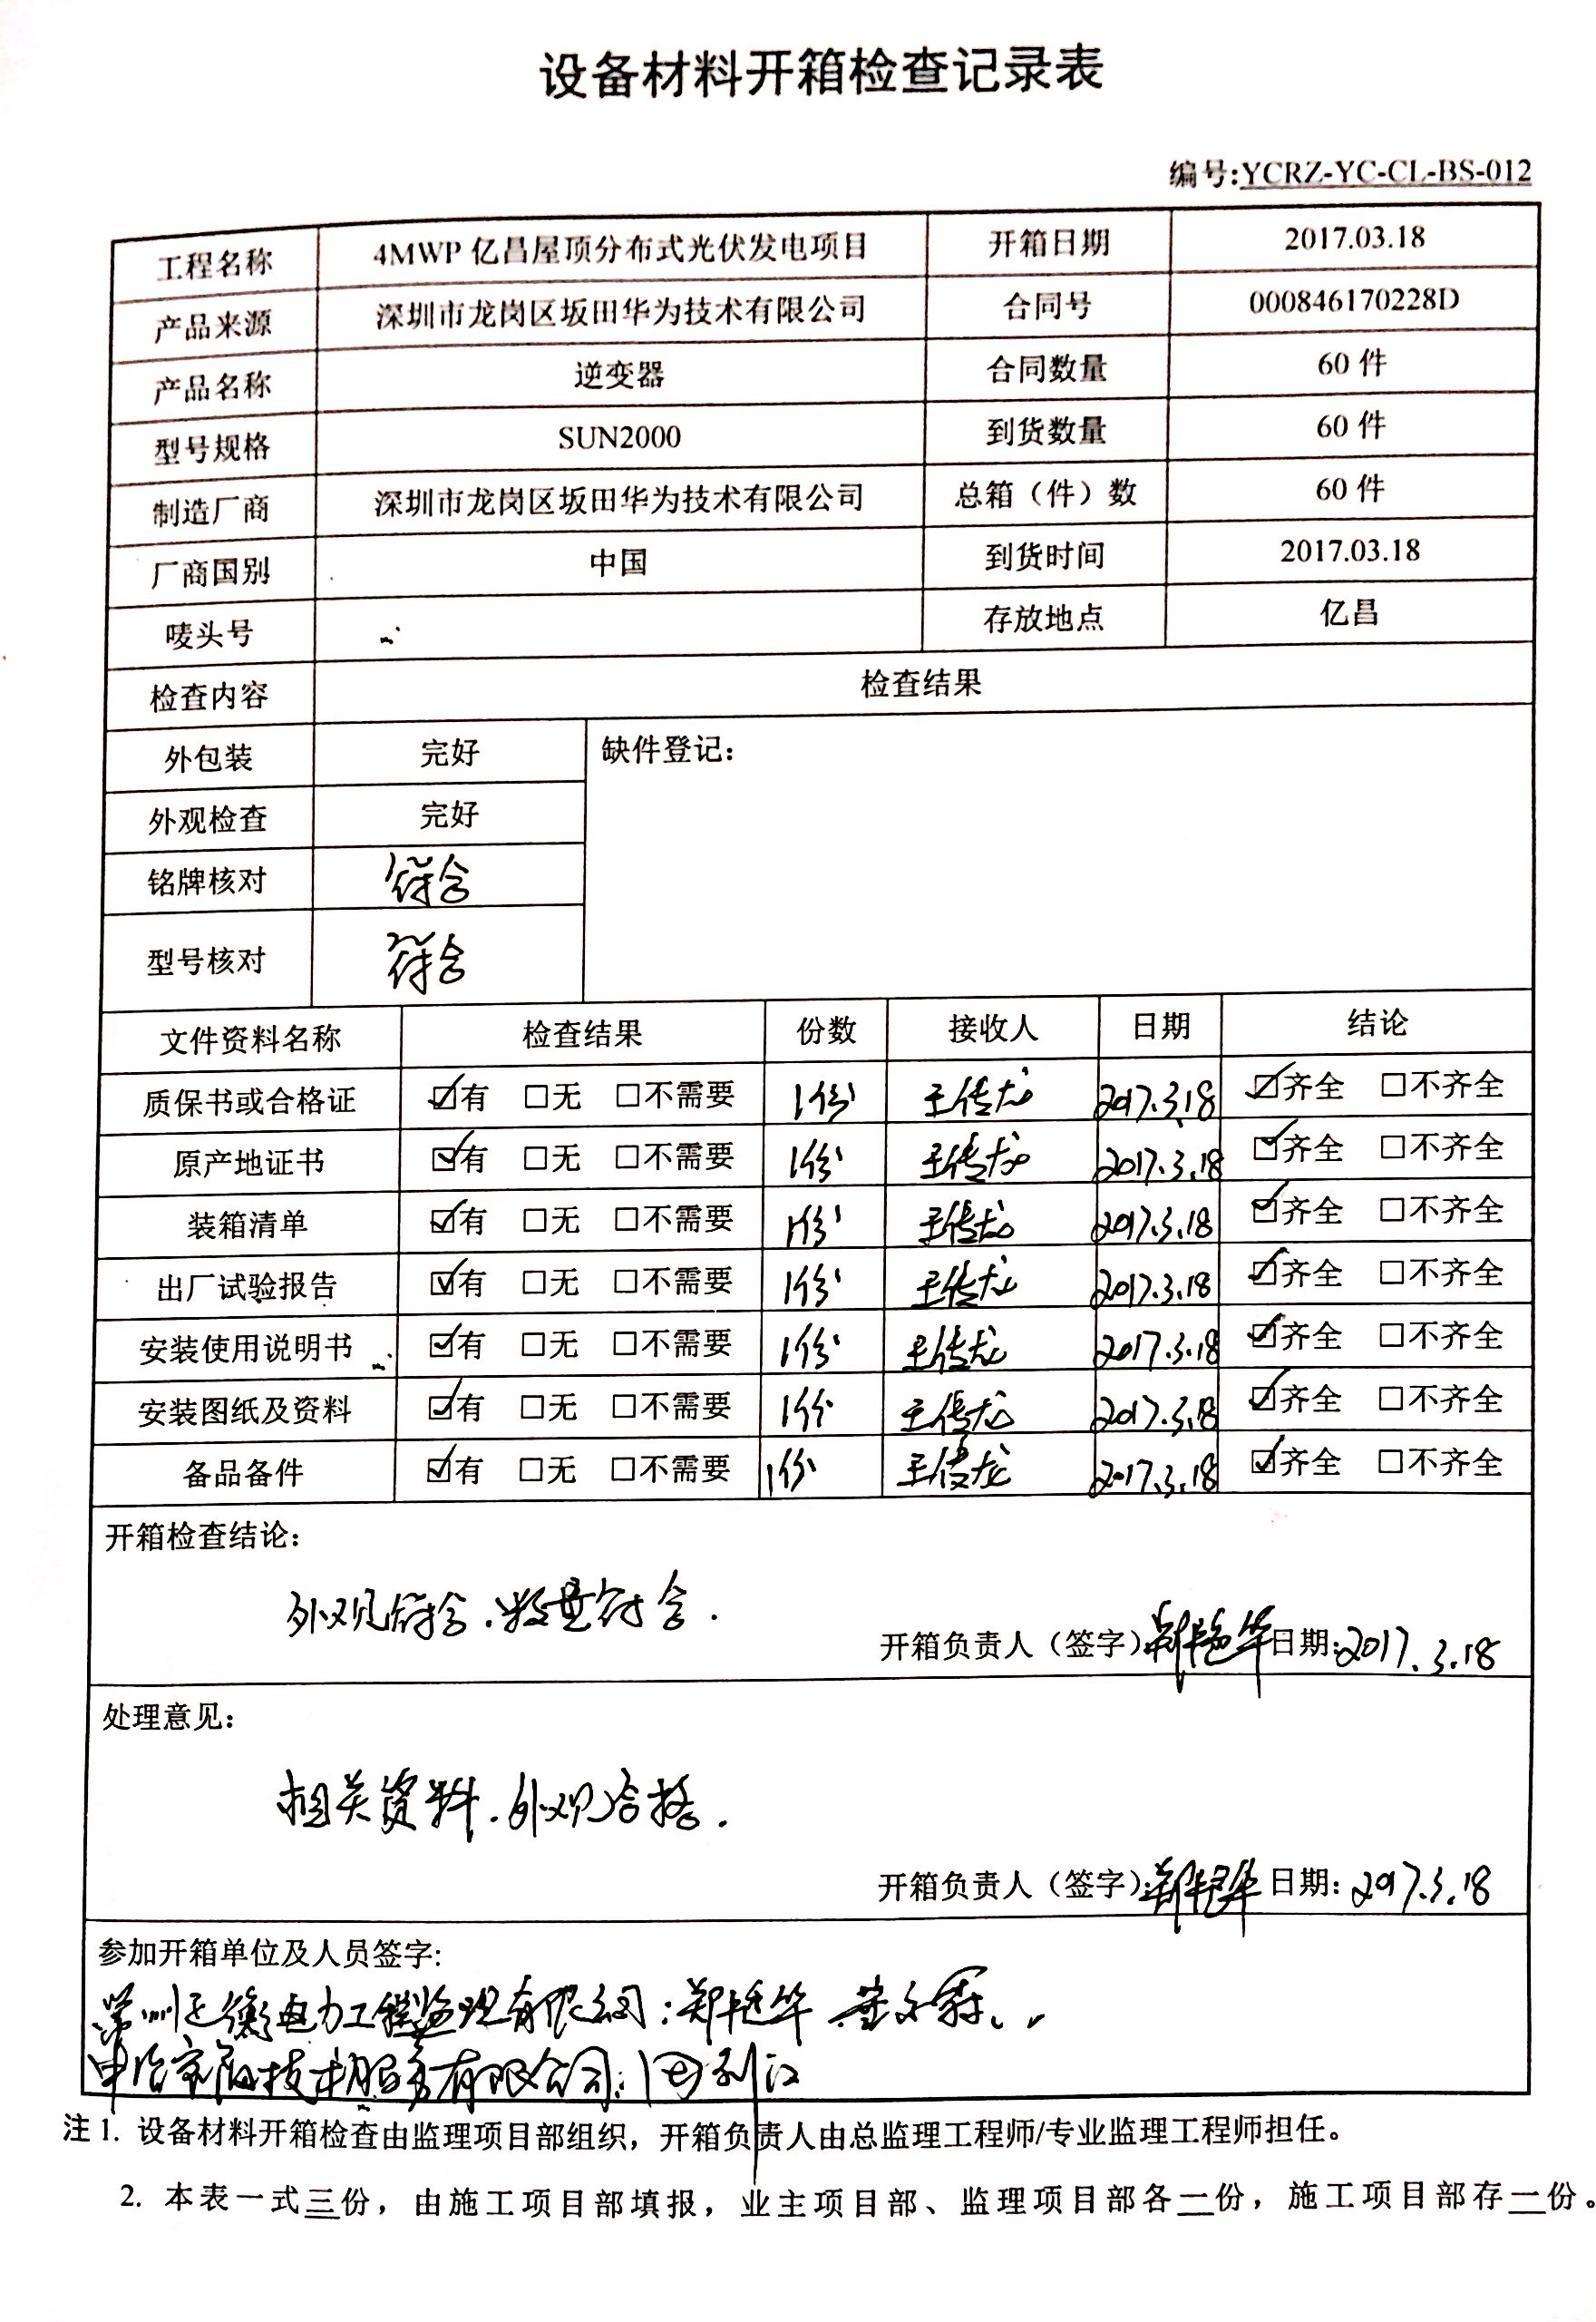 设备材料开箱检查记录表
编号:YCRZ-YC-CL-BS-012
工程名称 4MWP 亿昌屋顶分布式光伏发电项目 开箱日期 2017.03.18
产品来源 深圳市龙岗区坂田华为技术有限公司 合同号 000846170228D
产品名称 逆变器 合同数量 60 件
型号规格 SUN2000 到货数量 60 件
制造厂商 深圳市龙岗区坂田华为技术有限公司 总箱（件）数 60 件
厂商国别 中国 到货时间 2017.03.18
唛头号 存放地点 亿昌
检查内容 检查结果
外包装 完好 缺件登记：
外观检查 完好
铭牌核对 符合
型号核对 符合
文件资料名称 检查结果 份数 接收人 日期 结论
质保书或合格证 ☑有 □无 □不需要 1份 王传龙 2017.3.18 ☑齐全 □不齐全
原产地证书 ☑有 □无 □不需要 1份 王传龙 2017.3.18 ☑齐全 □不齐全
装箱清单 ☑有 □无 □不需要 1份 王传龙 2017.3.18 ☑齐全 □不齐全
出厂试验报告 ☑有 □无 □不需要 1份 王传龙 2017.3.18 ☑齐全 □不齐全
安装使用说明书 ☑有 □无 □不需要 1份 王传龙 2017.3.18 ☑齐全 □不齐全
安装图纸及资料 ☑有 □无 □不需要 1份 王传龙 2017.3.18 ☑齐全 □不齐全
备品备件 ☑有 □无 □不需要 1份 王传龙 2017.3.18 ☑齐全 □不齐全
开箱检查结论：
外观符合.数量符合.
开箱负责人（签字）：郑艳华 日期：2017.3.18
处理意见：
相关资料.外观合格.
开箱负责人（签字）：郑艳华 日期：2017.3.18
参加开箱单位及人员签字:
常州正衡电力工程监理有限公司：郑艳华
技术服务有限公司：田利江
注 1. 设备材料开箱检查由监理项目部组织，开箱负责人由总监理工程师/专业监理工程师担任。
2. 本表一式三份，由施工项目部填报，业主项目部、监理项目部各一份，施工项目部存一份。